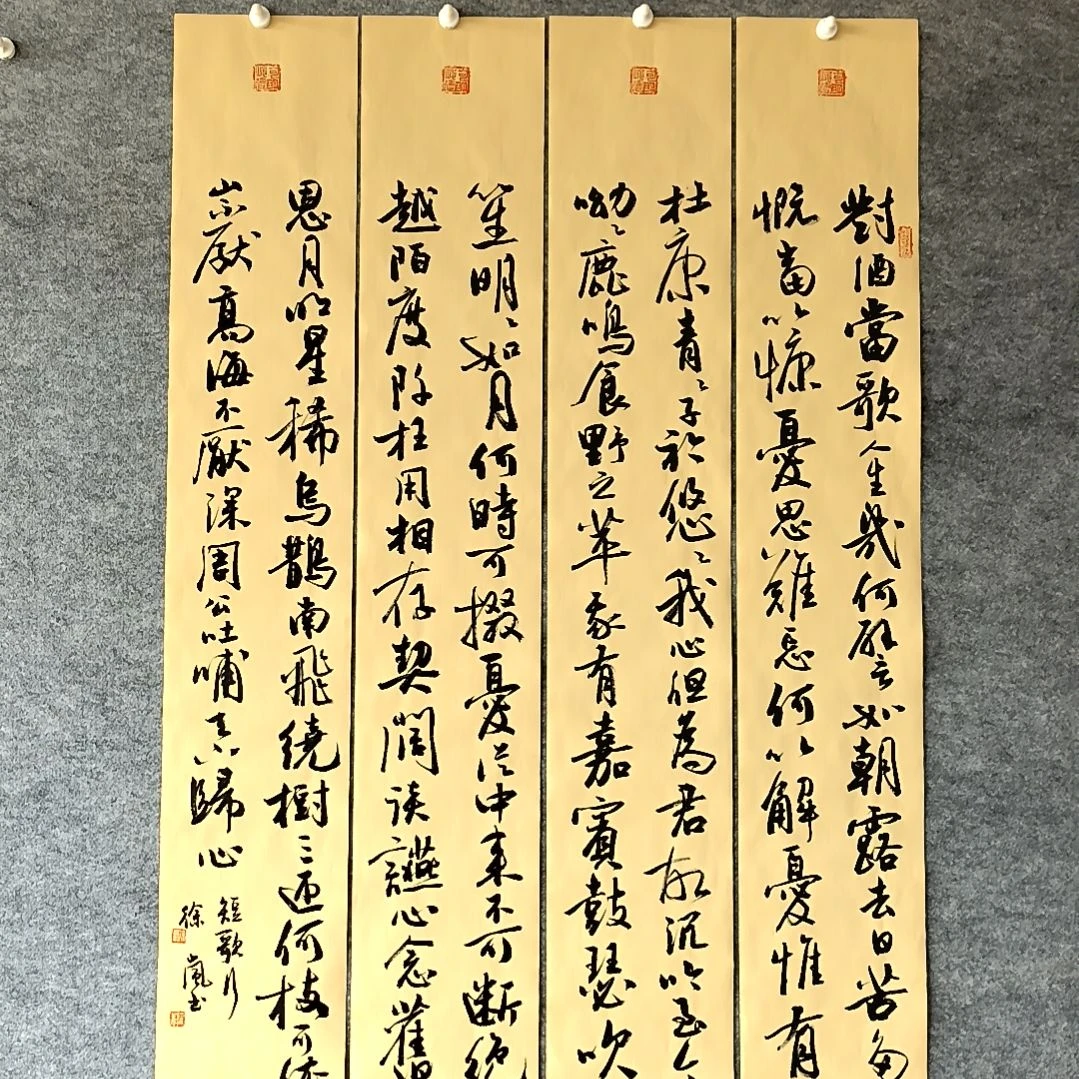 對酒當歌人生幾何譬如朝露去日苦多
慨當以慷憂思難忘何以解憂惟有
杜康青〻子衿悠〻我心但為君故沉吟至今
呦〻鹿鳴食野之苹我有嘉賓鼓瑟吹
笙明〻如月何時可掇憂從中來不可斷絕
越陌度阡枉用相存契闊談讌心念舊
恩月明星稀烏鵲南飛繞樹三匝何枝可依
山不厭高海不厭深周公吐哺天下歸心
短歌行
徐嵐書